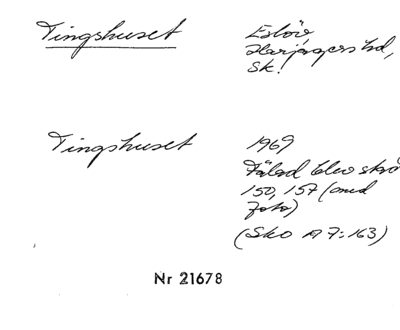 Tingshuset
Eslöv,
Harjagers hd,
Sk.
Tingshuset
1969
150, 157 (med
foto)
(Sko A 7:163)
Nr 21678